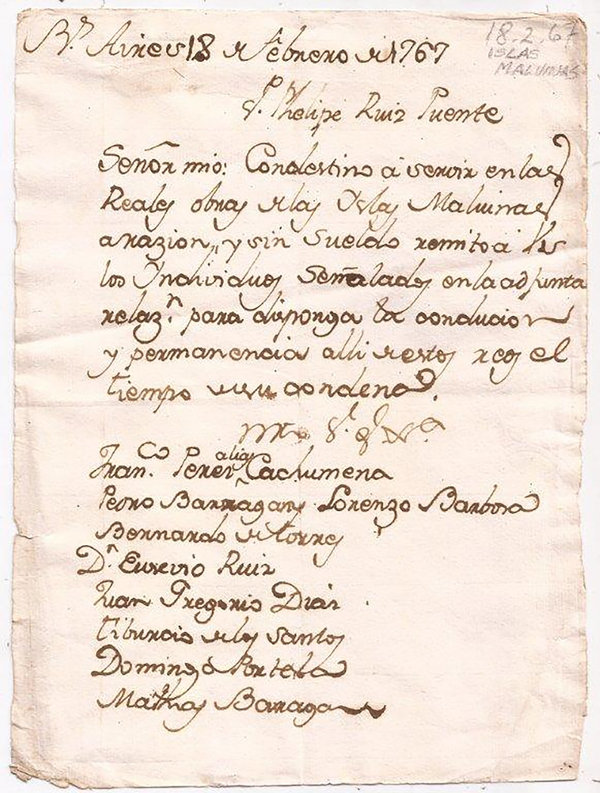 Bs. Aires 18 de Febrero de 1767
18.2.67
ISLAS
MALVINAS
Phelipe Ruiz Puente
Señor mio: Con destino a servir en las
Reales obras de las Yslas Malvinas
a razion, y sin sueldo remito a
los Yndividuos Señalados en la adjunta
relazn. para disponga la conducion
y permanencia alli de estos reos el
tiempo de su condena.
Franco. Perez alias Cachumena
Pedro Barragan Lorenzo Barbosa
Bernardo de torres
Dn. Eusevio Ruiz
Juan Gregorio Diaz
tiburcio de los Santos
Domingo Portela
Mathias Barragan